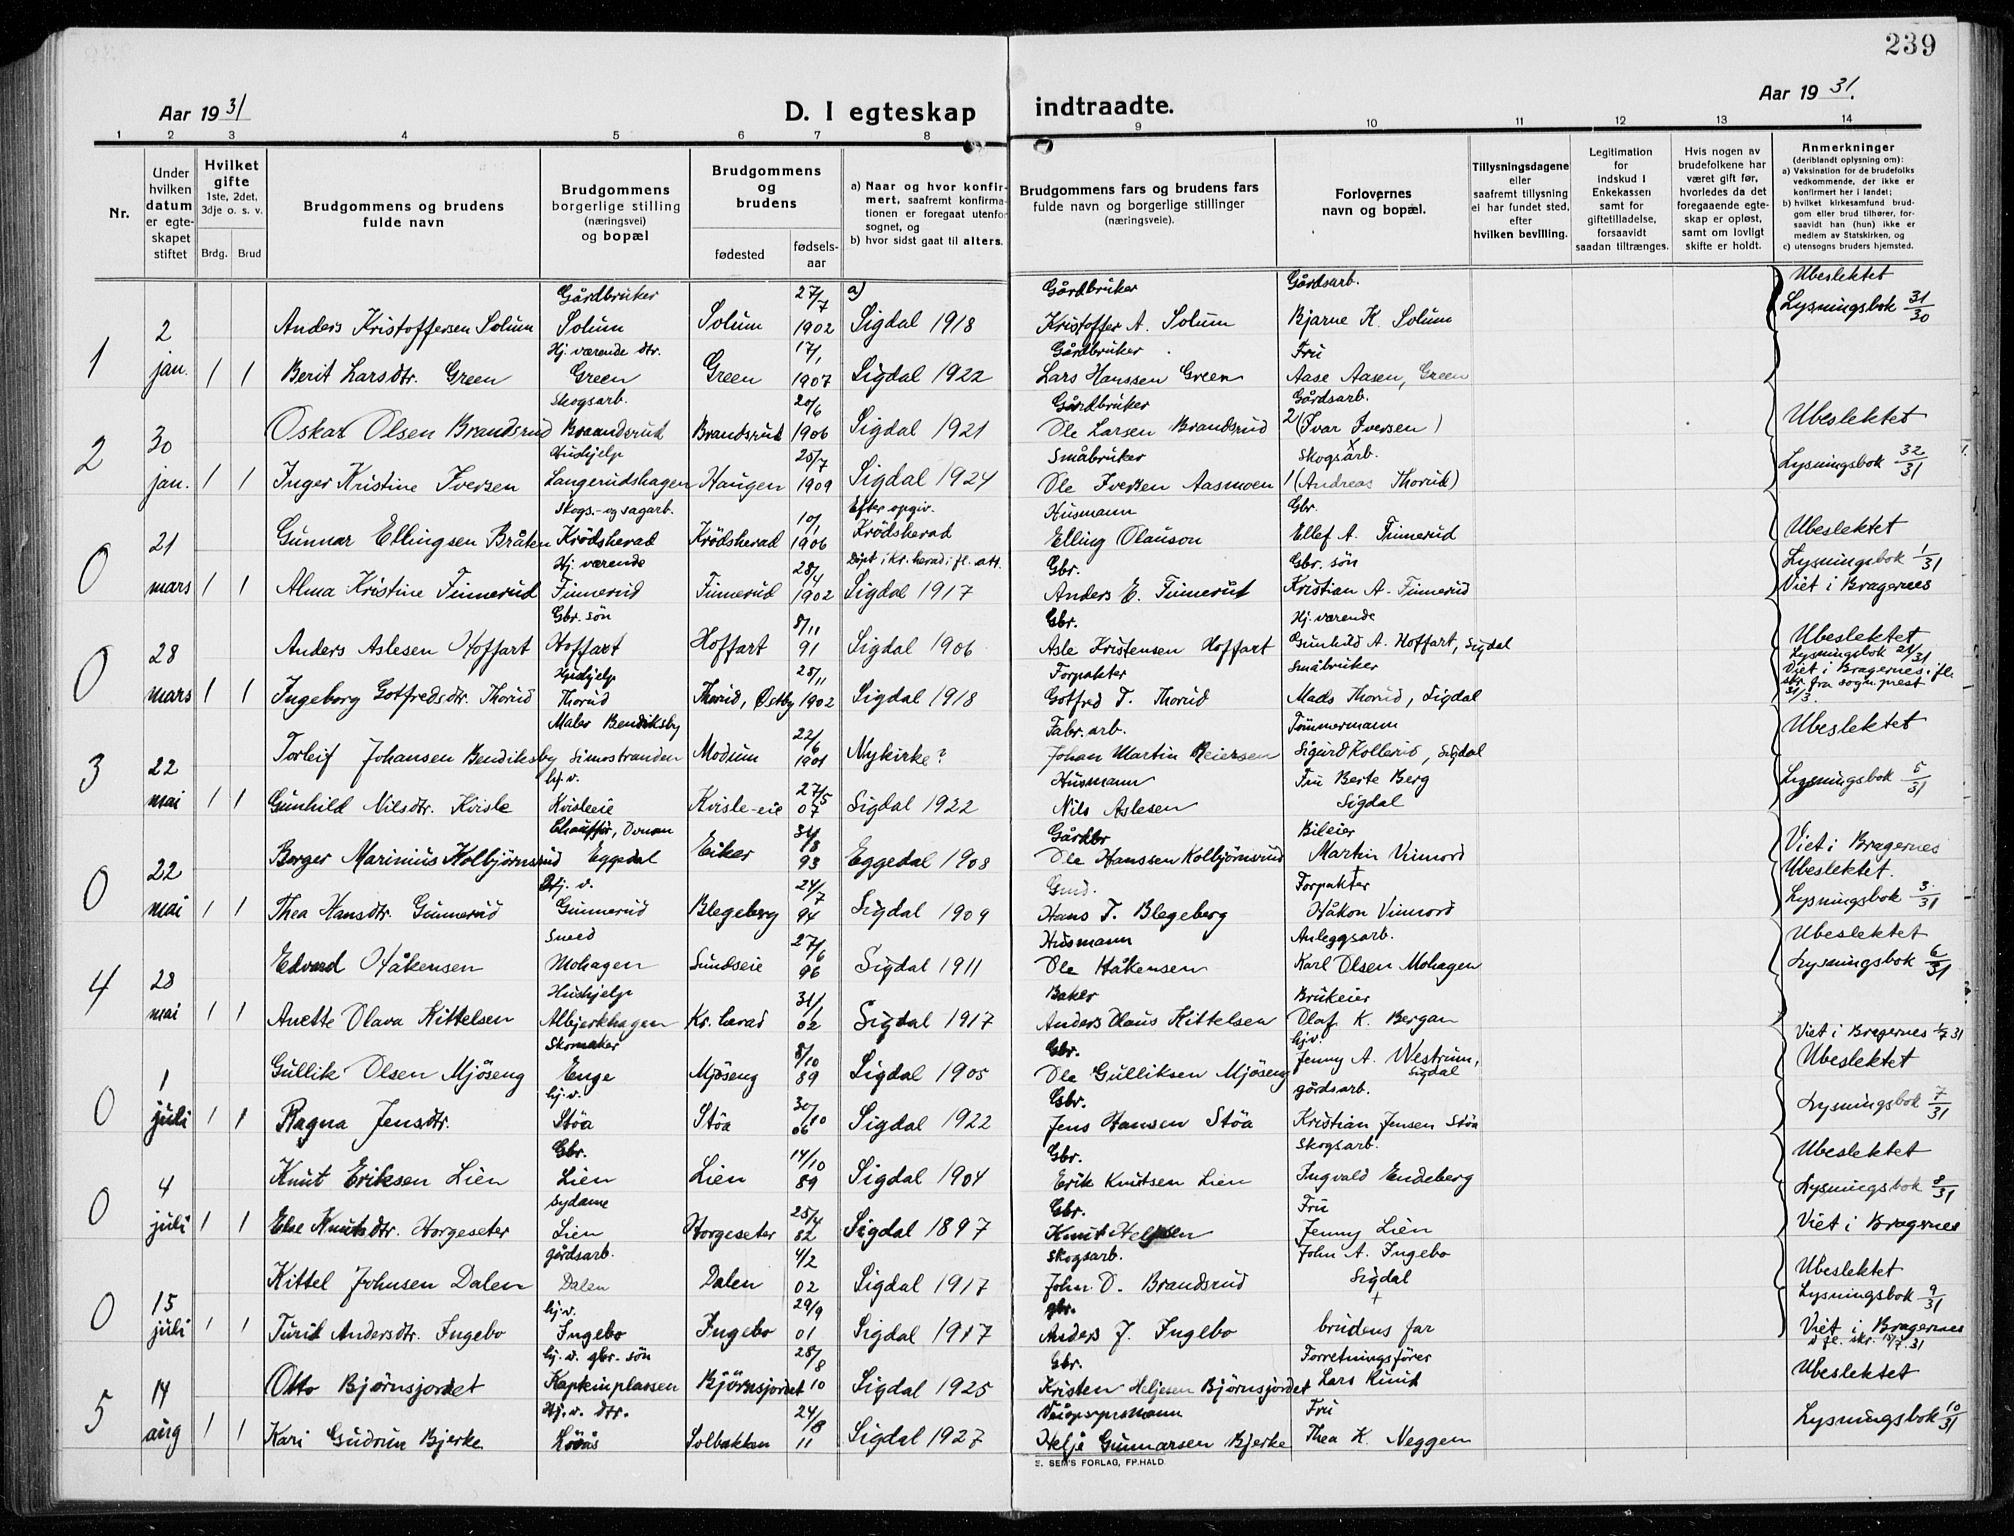 239
Aar 1931
D. I egteskap indtraadte.
Aar 1931.
1 2 3 4 5 6 7 8 9 10 11 12 13 14
Nr.
Under hvilken datum er egteskapet stiftet
Hvilket gifte 1ste, 2det, 3dje o. s. v.
Brdg. Brud
Brudgommens og brudens fulde navn
Brudgommens borgerlige stilling (næringsvei) og bopæl
Brudgommens og brudens
fødested
fødselsaar
a) Naar og hvor konfirmert, saafremt konfirmationen er foregaat utenfor sognet, og
b) hvor sidst gaat til alters.
Brudgommens fars og brudens fars fulde navn og borgerlige stillinger (næringsveie).
Forlovernes navn og bopæl.
Tillysningsdagene eller saafremt tillysning ei har fundet sted, efter hvilken bevilling.
Legitimation for indskud i Enkekassen samt for giftetilladelse, forsaavidt saadan tiltrænges.
Hvis nogen av brudefolkene har været gift før, hvorledes da det foregaaende egteskap er opløst, samt om lovligt skifte er holdt.
Anmerkninger (deriblandt oplysning om):
a) Vaksination for de brudefolks vedkommende, der ikke er konfirmert her i landet;
b) hvilket kirkesamfund brudgom eller brud tilhører, forsaavidt han (hun) ikke er medlem av Statskirken, og
c) utensogns bruders hjemsted.
Gårdbruker 27/7 a) Gårdbruker Gårdsarb. Ubeslektet
1 2 Anders Kristoffersen Solum Solum Solum 1902 Sigdal 1918 Kristoffer A. Solum Bjarne K. Solum Lysningsbok 31/30
Hj. værende dtr. 17/1 Gårdbruker Fru
jan. 1 1 Berit Larsdtr. Green Green Green 1907 Sigdal 1922 Lars Hanssen Green Aase Aasen, Green
Skogsarb. 20/6 Gårdbruker Gårdsarb.
2 30 Oskar Olsen Brandsrud Braandsrud Brandsrud 1906 Sigdal 1921 Ole Larsen Brandsrud 2 (Ivar Iversen) Ubeslektet
Hushjelp 25/7 Småbruker Skogsarb.
jan. 1 1 Inger Kristine Iversen Langerudshagen Haugen 1909 Sigdal 1924 Ole Iversen Aasmoen 1 (Andreas Thorud) Lysningsbok 32/31
Skogs- og sagarb. 10/1 Efter opgiv. Husmann Gbr.
0 21 Gunnar Ellingsen Bråten Krødsherad Krødsherad 1906 Krødsherad Elling Olauson Ellef A. Finnerud Ubeslektet
Hj. værende 28/4 Døpt i Kr. herad i fl. att. Gbr. Gbr. søn Lysningsbok 1/31
mars 1 1 Alma Kristine Finnerud Finnerud Finnerud 1902 Sigdal 1917 Anders E. Finnerud Kristian A. Finnerud Viet i Bragernes
Gbr. søn 8/11 Gbr. Hj. værende
0 28 Anders Aslesen Hoffart Hoffart Hoffart 91 Sigdal 1906 Asle Kristensen Hoffart Gunhild A. Hoffart, Sigdal Ubeslektet
Lysningsbok 2/31
Hushjelp 28/11 Forpakter Småbruker Viet i Bragernes i fl.
mars 1 1 Ingeborg Gotfredsdtr. Thorud Thorud Thorud, Østby 1902 Sigdal 1918 Gotfred T. Thorud Mads Thorud, Sigdal skr. fra sogn.prest 31/3
Maler Bendiksby 22/6 Fabr. arb. Tømmermann Ubeslektet
3 22 Torleif Johansen Bendiksby Simostranden Modum 1901 Nykirke? Johan Martin Reiersen Sigurd Kollerud, Sigdal
hj. v. 27/5 Husmann Fru Berte Berg
mai 1 1 Gunhild Nilsdtr. Kvisle Kvisleeie Kvisle-eie 07 Sigdal 1922 Nils Aslesen Sigdal Lysningsbok 5/31
Chauffør, 31/8 Gårdbr Bileier Viet i Bragernes
0 22 Borger Marinius Kolbjørnsrud Eggedal Eiker 93 Eggedal 1908 Ole Hanssen Kolbjørnsrud Martin Vimord Ubeslektet.
Hj. v. 24/7 Forpakter
mai 1 1 Thea Hansdtr. Gunnerud Gunnerud Blegeberg 94 Sigdal 1909 Hans T. Blegeberg Håkon Vimord Lysningsbok 3/31
Smed 27/6 Husmann Anleggsarb. Ubeslektet
4 28 Edvard Håkensen Mohagen Sundseie 96 Sigdal 1911 Ole Håkensen Karl Olsen Mohagen Lysningsbok 6/31
Hushjelp 31/1 Baker Brukeier
mai 1 1 Anette Olava Kittelsen Albjerkhagen Kr. herad 02 Sigdal 1917 Anders Olaus Kittelsen Olaf K. Bergan
Skomaker 8/10 Gbr. hj.v. Viet i Bragernes 1/7 31
0 1 Gullik Olsen Mjøseng Enge Mjøseng 89 Sigdal 1905 Ole Gulliksen Mjøseng Jenny A. Westrum, Sigdal Ubeslektet
hj. v. 30/10 Gbr. gårdsarb.
juli 1 1 Ragna Jensdtr. Støa Støa 06 Sigdal 1922 Jens Hansen Støa Kristian Jensen Støa Lysningsbok 7/31
Gbr. 14/10 Gbr. Skogsarb. Ubeslektet
0 4 Knut Eriksen Lien Lien Lien 89 Sigdal 1904 Erik Knutsen Lien Ingvald Endeberg Lysningsbok 8/31
Sydame 25/4 Gbr. Fru
juli 1 1 Else Knutsdtr. Horgeseter Lien Horgeseter 82 Sigdal 1897 Knut Helgesen Jenny Lien Viet i Bragernes
gårdsarb. 4/2 Skogsarb. John A. Ingebo Ubeslektet
0 15 Kittel Johnsen Dalen Dalen Dalen 02 Sigdal 1917 John O. Brandsrud Sigdal Lysningsbok 9/31
hj. v. 29/9 gbr. +
juli 1 1 Turid Andersdtr. Ingebo Ingebo Ingebo 01 Sigdal 1917 Anders J. Ingebo brudens far Viet i Bragernes
fl. skr. 15/7.31
hj. v. gbr. søn 28/8 Gbr. Forretningsfører
5 14 Otto Bjørnsjordet Kapteinplassen Bjørnsjordet 10 Sigdal 1925 Kristen Heljesen Bjørnsjordet Lars Knut Ubeslektet
Hj. v. dtr. 24/8 Veiopsynsmann Fru
aug 1 1 Kari Gudrun Bjerke Hovås Solbakken 11 Sigdal 1927 Helje Gunnarsen Bjerke Thea K. Neggen Lysningsbok 10/31
E. SEM'S FORLAG, FR.HALD